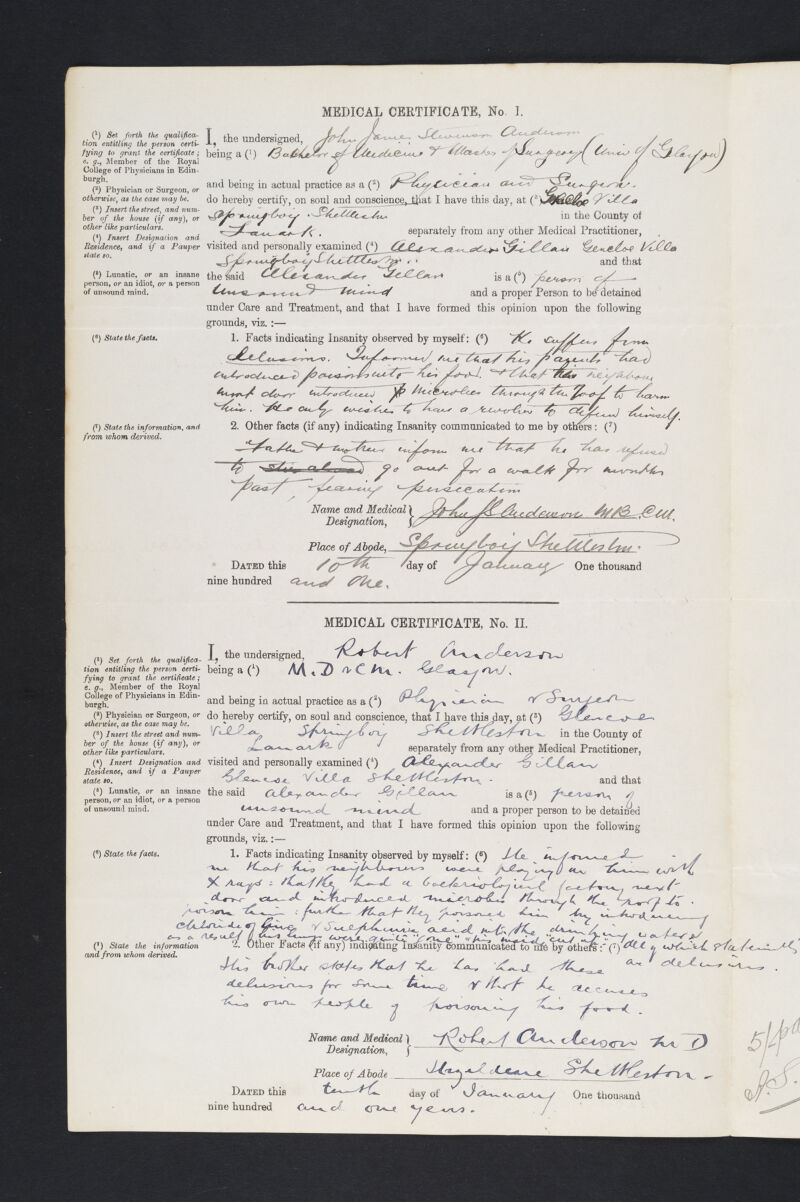 MEDICAL CERTIFICATE, No. I.
(1) Set forth the qualifica-
tion entitling the person certi-
fying to grant the certificate;
e. g., Member of the Royal
College of Physicians in Edin-
burgh.
(2) Physician or Surgeon, or
otherwise, as the case may be.
(3) Insert the street, and num-
ber of the house (if any), or
other like particulars.
(4) Insert Designation and
Residence, and if a Pauper
state so.
(5) Lunatic, or an insane
person, or an idiot, or a person
of unsound mind.
I, the undersigned, John James Stevenson Anderson
being a (1) Bachelor of Medicine & Master of Surgery (Univ of Glasgow)
and being in actual practice as a (2) Physician and Surgeon.
do hereby certify, on soul and conscience, that I have this day, at (3) Glencoe Villa
Springboig Shettleston in the County of
Lanark. separately from any other Medical Practitioner,
visited and personally examined (4) Alexander Gillan Glencoe Villa
Springboig Shettleston. and that
the said Alexander Gillan is a (5) person of
unsound mind and a proper Person to be detained
under Care and Treatment, and that I have formed this opinion upon the following
grounds, viz. :—
(6) State the facts.
1. Facts indicating Insanity observed by myself: (6) He suffers from
Delusions. Informed me that his parents had
introduced poisons into his food & that his neighbours
next door introduced microbes through the roof to harm
him. He only wishes to have a revolver to defend himself.
(7) State the information, and
from whom derived.
2. Other facts (if any) indicating Insanity communicated to me by others: (7)
Father & mother inform me that he has refused
to go out for a walk for months
past, fearing persecution
Name and Medical Designation, John J S Anderson M.B. C.M.
Place of Abode, Springboig Shettleston.
DATED this 10th day of January One thousand
nine hundred and One.
MEDICAL CERTIFICATE, No. II.
(1) Set forth the qualifica-
tion entitling the person certi-
fying to grant the certificate;
e. g., Member of the Royal
College of Physicians in Edin-
burgh.
(2) Physician or Surgeon, or
otherwise, as the case may be.
(3) Insert the street and num-
ber of the house (if any), or
other like particulars.
(4) Insert Designation and
Residence, and if a Pauper
state so.
(5) Lunatic, or an insane
person, or an idiot, or a person
of unsound mind.
I, the undersigned, Robert Anderson
being a (1) M.D & C.M. Glasgow.
and being in actual practice as a (2) Physician & Surgeon
do hereby certify, on soul and conscience, that I have this day, at (3) Glencoe
Villa Springboig Shettleston in the County of
Lanark separately from any other Medical Practitioner,
visited and personally examined (4) Alexander Gillan
Glencoe Villa Shettleston. and that
the said Alexander Gillan is a (5) person of
unsound mind and a proper person to be detained
under Care and Treatment, and that I have formed this opinion upon the following
grounds, viz. :—
(6) State the facts.
1. Facts indicating Insanity observed by myself: (6) He informed
me that his neighbours were playing on him with
X rays: that they had a bacteriological factory next
door and introduced microbes through the roof to
poison him: further that they poisoned him by introducing
chloride of lime & Sulphuric acid into the drinking water &
as a result his lungs were quite "gone" & his inside "cut up" All of which statements
are delusions.
(7) State the information
and from whom derived.
2. Other Facts (if any) indicating Insanity communicated to me by others: (7)
His brother states that he has had these
delusions for some time & that he accuses
his own people of poisoning his food.
Name and Medical Designation, Robert Anderson M D
Place of Abode Hazeldene Shettleston.
DATED this tenth day of January One thousand
nine hundred and one years.
5/-pd